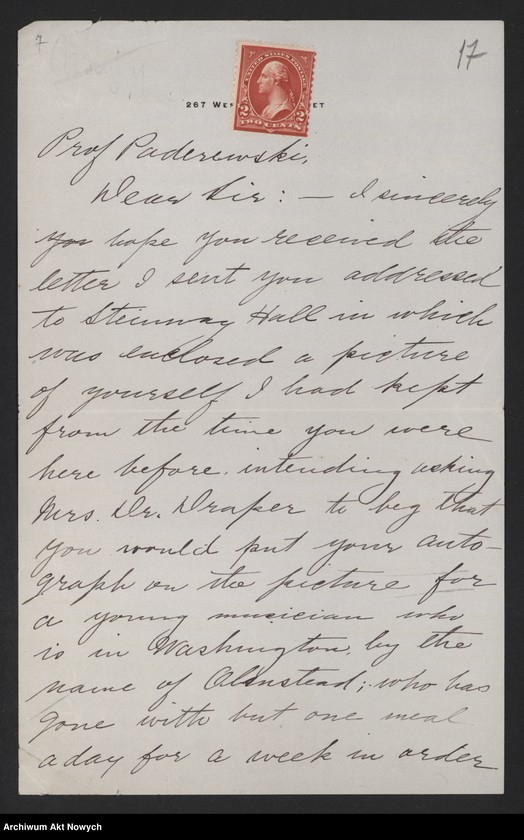 7
17
267 Wes ET
UNITED STATES POSTAGE
2 2
TWO CENTS
Prof Paderewski,
Dear Sir: — I sincerely
you hope you received the
letter I sent you addressed
to Steinway Hall in which
was enclosed a picture
of yourself I had kept
from the time you were
here before. intending asking
Mrs. Dr. Draper to beg that
you would put your auto-
graph on the picture for
a young musician who
is in Washington, by the
name of Olmstead; who has
gone with but one meal
a day for a week in order
Archiwum Akt Nowych